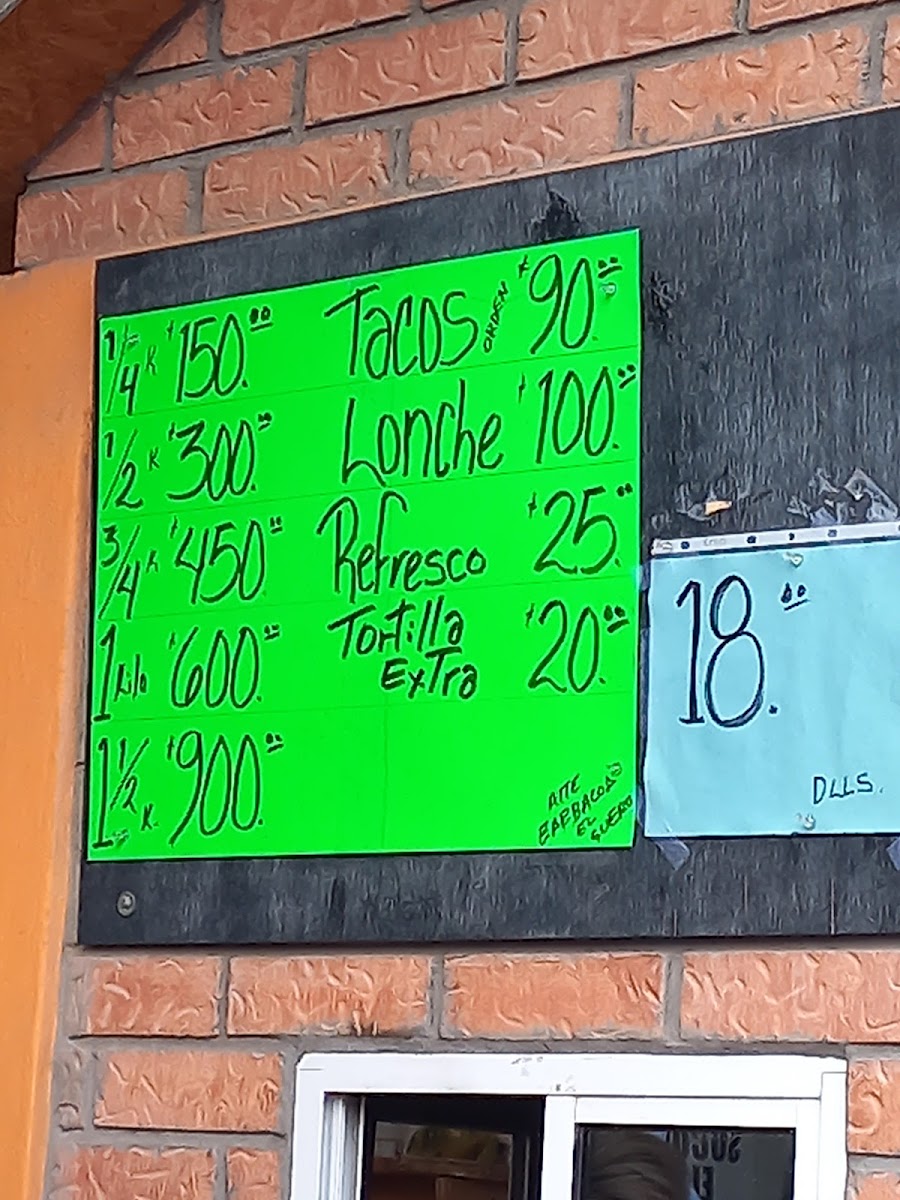 1/4 K $150.00
1/2 K $300.00
3/4 K $450.00
1 Kilo $600.00
1 1/2 K. $900.00
Tacos ORDEN $90.00
Lonche $100.00
Refresco $25.00
Tortilla
Extra $20.00
BARBACOA
EL
GUERO
18.00
DLLS.